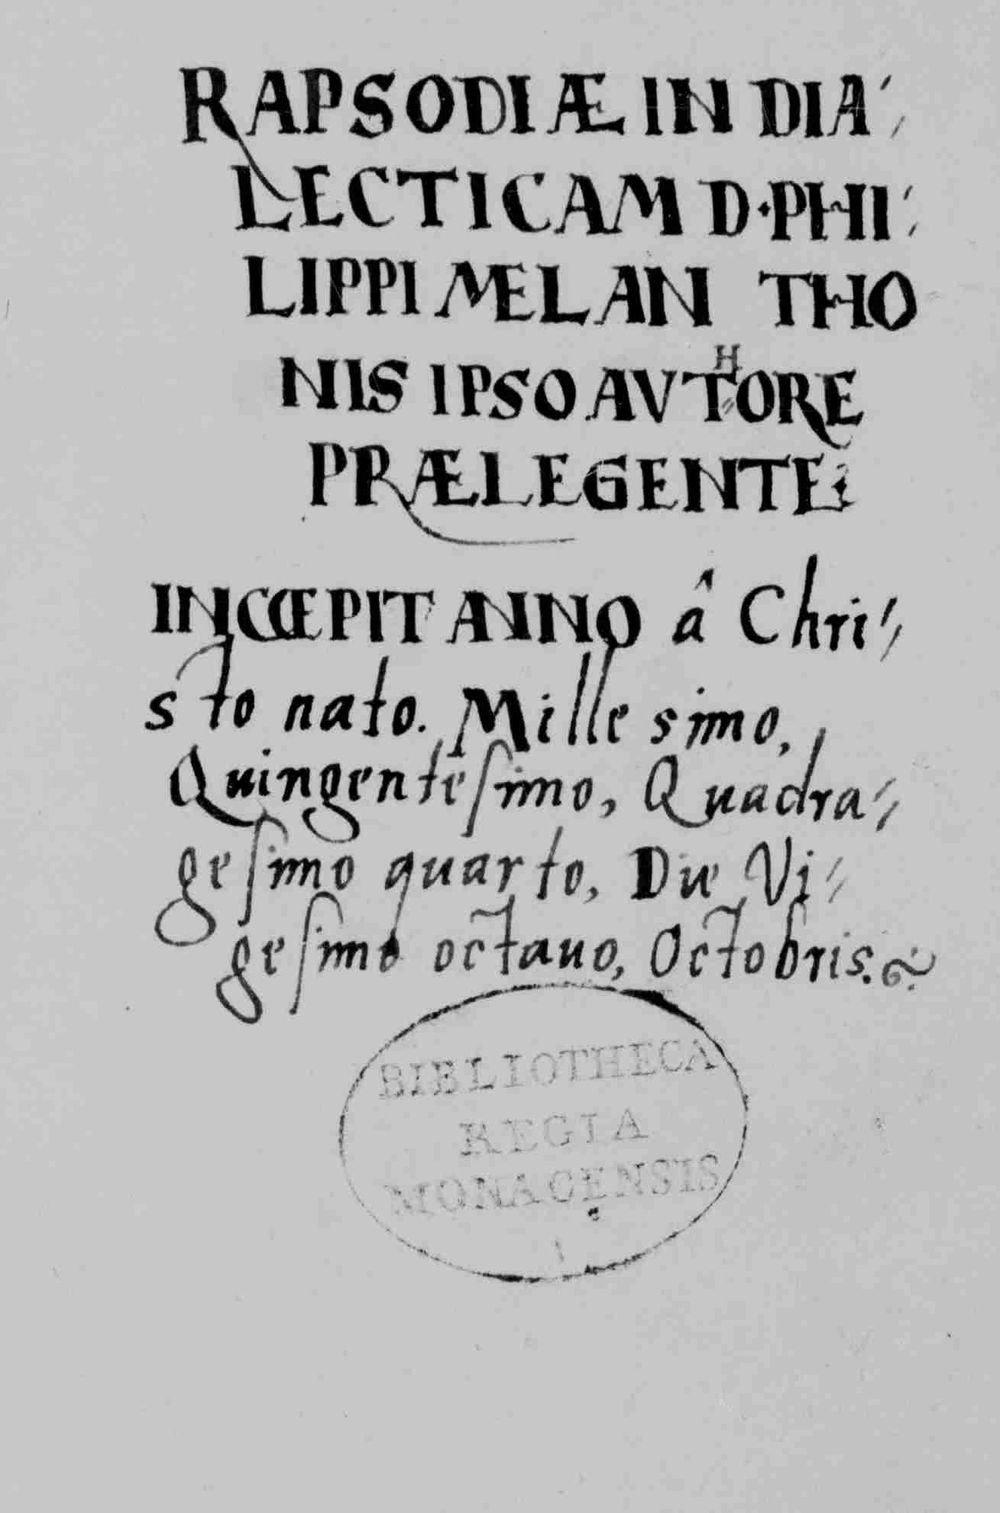 RAPSODIÆ IN DIA⸗
LECTICAM D·PHI⸗
LIPPI MELAN THO
NIS IPSO AVTHORE
PRÆLEGENTE
INCŒPIT ANNO â Chri⸗
sto nato. Millesimo,
Quingenteſimo, Quadra⸗
geſimo quarto, Die Vi⸗
geſimo octauo, Octobris.
BIBLIOTHECA
REGIA
MONACENSIS